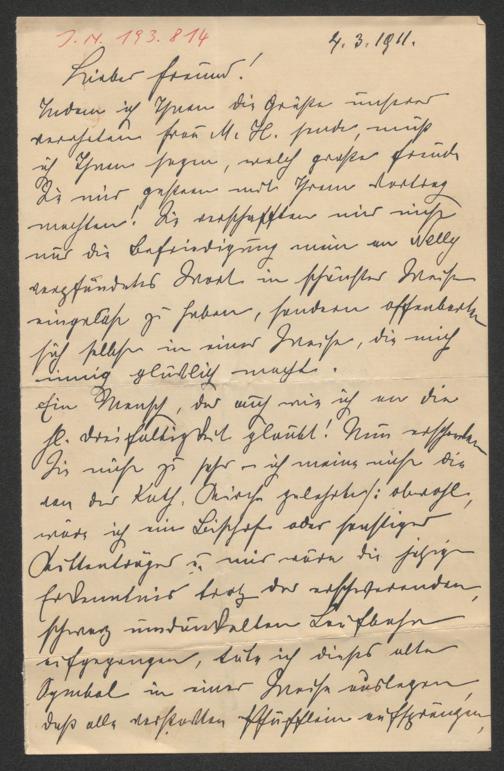 I. N. 193.814
4. 3. 1911.
Lieber Freund!
Indem ich Ihnen die Grüße unserer
verehrten Frau M. H. sende, muß
ich Ihnen sagen, welch große Freude
Sie mir gestern mit Ihrem Vortrag
machten! Sie verschafften mir nicht
nur die Befriedigung mein an Nelly
verpfändetes Wort in schönster Weise
eingelöst zu haben, sondern offenbarten
sich selbst in einer Weise, die mich
innig glücklich machte.
Ein Mensch, der auch wie ich an die
hl. Dreifaltigkeit glaubt! Nun erschrecken
Sie nicht zu sehr – ich meine nicht die
von der Kath. Kirche gelehrte; obwohl,
wäre ich ein Bischof oder sonstiger
Kuttenträger u. mir wäre die jetzige
Erkenntnis trotz der erschwerenden,
schwarz umdunkelten Laufbahn
aufgegangen, täte ich dieses alte
Symbol in einer Weise auslegen,
daß alle verstockten Pfäfflein aufsprängen,